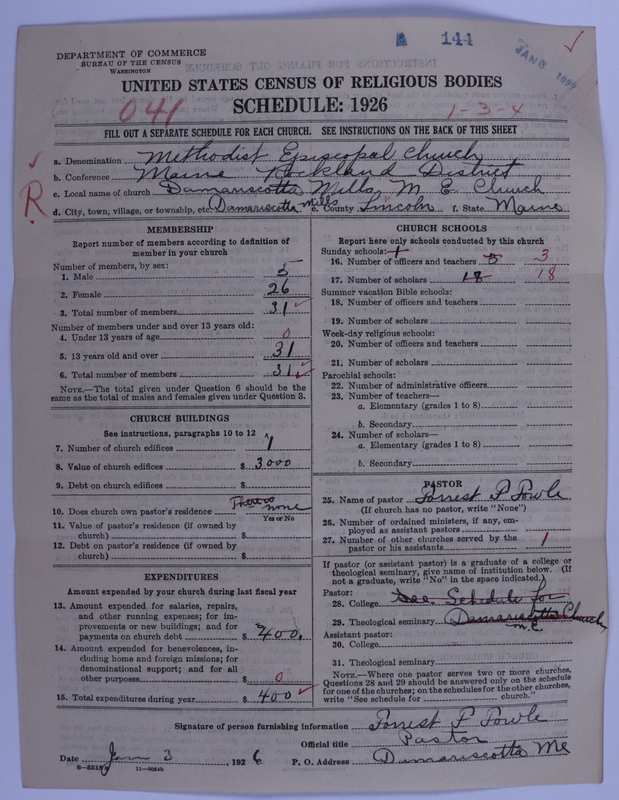 A 144
JAN 8
DEPARTMENT OF COMMERCE
BUREAU OF THE CENSUS
WASHINGTON
UNITED STATES CENSUS OF RELIGIOUS BODIES
SCHEDULE: 1926
041
1-3-4
FILL OUT A SEPARATE SCHEDULE FOR EACH CHURCH. SEE INSTRUCTIONS ON THE BACK OF THIS SHEET
R
a. Denomination Methodist Episcopal Church
b. Conference Maine Rockland District
c. Local name of church Damariscotta Mills M E Church
d. City, town, village, or township, etc. Damariscotta Mills e. County Lincoln f. State Maine
MEMBERSHIP
Report number of members according to definition of
member in your church
Number of members, by sex:
1. Male 5
2. Female 26
3. Total number of members 31
Number of members under and over 13 years old:
4. Under 13 years of age 0
5. 13 years old and over 31
6. Total number of members 31
NOTE.—The total given under Question 6 should be the
same as the total of males and females given under Question 3.
CHURCH BUILDINGS
See instructions, paragraphs 10 to 12
7. Number of church edifices 1
8. Value of church edifices $ 3000
9. Debt on church edifices $
10. Does church own pastor's residence none
Yes or No
11. Value of pastor's residence (if owned by
church) $
12. Debt on pastor's residence (if owned by
church) $
EXPENDITURES
Amount expended by your church during last fiscal year
13. Amount expended for salaries, repairs,
and other running expenses; for im-
provements or new buildings; and for
payments on church debt $ 400.
14. Amount expended for benevolences, in-
cluding home and foreign missions; for
denominational support; and for all
other purposes $ 0
15. Total expenditures during year $ 400
CHURCH SCHOOLS
Report here only schools conducted by this church
Sunday schools: 1
16. Number of officers and teachers 3 3
17. Number of scholars 18 18
Summer vacation Bible schools:
18. Number of officers and teachers
19. Number of scholars
Week-day religious schools:
20. Number of officers and teachers
21. Number of scholars
Parochial schools:
22. Number of administrative officers
23. Number of teachers—
a. Elementary (grades 1 to 8)
b. Secondary
24. Number of scholars—
a. Elementary (grades 1 to 8)
b. Secondary
PASTOR
25. Name of pastor Forrest P Fowle
(If church has no pastor, write "None")
26. Number of ordained ministers, if any, em-
ployed as assistant pastors
27. Number of other churches served by the
pastor or his assistants 1
If pastor (or assistant pastor) is a graduate of a college or
theological seminary, give name of institution below. (If
not a graduate, write "No" in the space indicated.)
Pastor:
28. College See Schedule for
29. Theological seminary Damariscotta Church
M.E
Assistant pastor:
30. College
31. Theological seminary
NOTE.—Where one pastor serves two or more churches,
Questions 28 and 29 should be answered only on the schedule
for one of the churches; on the schedules for the other churches,
write "See schedule for church."
Signature of person furnishing information Forrest P Fowle
Official title Pastor
Date Jan 3, 1926 P. O. Address Damariscotta Me
8-5518a 11-9024b